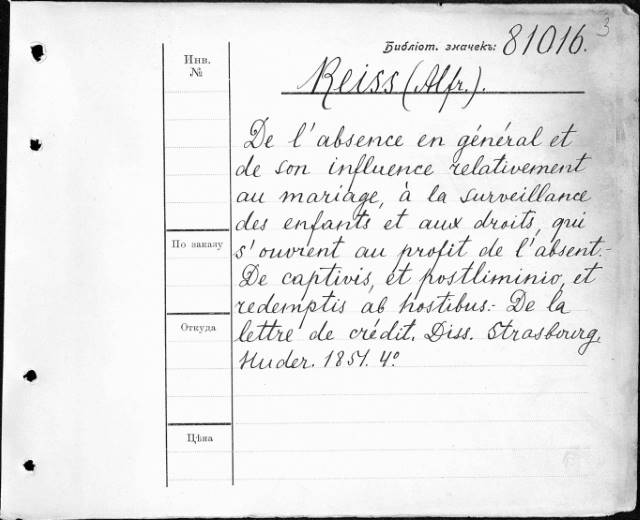 3
Библіот. значекъ: 81016.
Инв.
№
Reiss (Alfr.).
De l'absence en général et
de son influence relativement
au mariage, à la surveillance
des enfants et aux droits, qui
По заказу
s'ouvrent au profit de l'absent.-
De captivis, et postliminio, et
redemptis ab hostibus.- De la
Откуда
lettre de crédit. Diss. Strasbourg.
Huder. 1851. 4º.
Цѣна